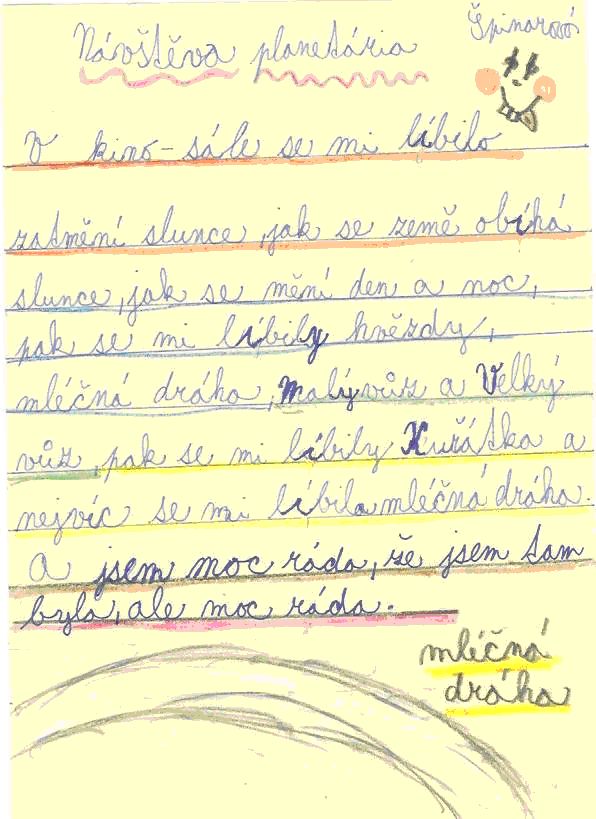 Špinarová
Návštěva planetária
V kino-sále se mi líbilo
zatmění slunce, jak se země obíhá
slunce, jak se mění den a noc,
pak se mi líbily hvězdy,
mléčná dráha, malý vůz a Velký
vůz, pak se mi líbily Kuřátka a
nejvíc se mi líbila mléčná dráha.
A jsem moc ráda, že jsem tam
byla, ale moc ráda.
mléčná
dráha